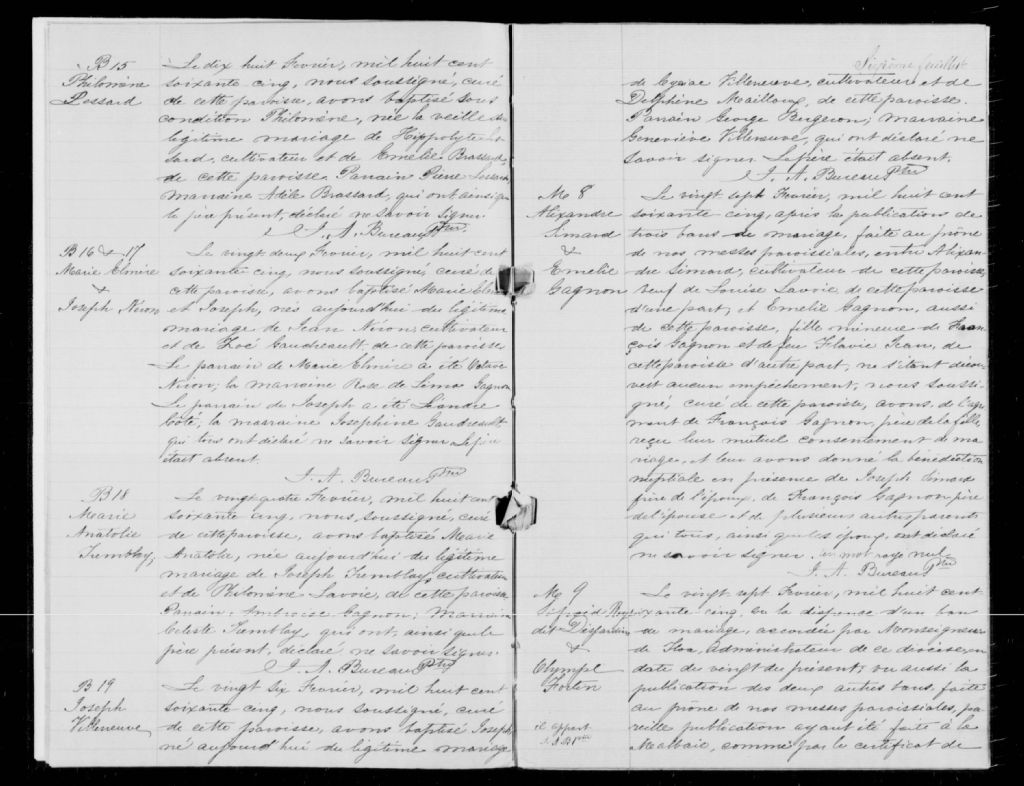 B 15
Philomène
Lessard
Le dix huit Fevrier, mil huit cent
soixante cinq, nous soussigné, curé
de cette paroisse, avons baptisé sous
condition Philomène, née la veille du
légitime mariage de Hippolyte Les
sard, cultivateur et de Emélie Brassard,
de cette paroisse. Parrain Pierre Lessard,
marraine Adèle Brassard, qui ont ainsi que
le père présent, déclaré ne savoir signer.
J. A. Bureau Ptre
B 16 & 17
Marie Elmire
&
Joseph Niron
Le vingt deux Fevrier, mil huit cent
soixante cinq, nous soussigné, curé de
cette paroisse, avons baptisé Marie Elmire
et Joseph, nés aujourd'hui du légitime
mariage de Jean Niron, cultivateur
et de Zoé Gaudreault de cette paroisse
Le parrain de Marie Elmire a été Octave
Niron; la marraine Rose de Lima Gagnon
Le parrain de Joseph a été Léandre
Côté, la marraine Josephine Gaudreault
qui tous ont déclaré ne savoir signer. Le père
était absent.
J. A. Bureau Ptre
B 18
Marie
Anatolie
Tremblay
Le vingt quatre Fevrier, mil huit cent
soixante cinq, nous, soussigné, curé
de cette paroisse, avons baptisé Marie
Anatolie, née aujourd'hui du légitime
mariage de Joseph Tremblay, cultivateur
et de Philomène Savoie, de cette paroisse
Parrain, Ambroise Gagnon; marraine
Celeste Tremblay, qui ont, ainsi que le
père présent, déclaré ne savoir signer.
J. A. Bureau Ptre
B 19
Joseph
Villeneuve
Le vingt six Fevrier, mil huit cent
soixante cinq, nous soussigné, curé
de cette paroisse, avons baptisé Joseph,
né aujourd'hui du légitime mariage
Sixième feuillet
de Villeneuve, cultivateur et de
Delphine Mailloux, de cette paroisse.
Parrain George Bergeron; marraine
Geneviève Villeneuve, qui ont déclaré ne
savoir signer. Le père était absent.
J. A. Bureau Ptre
M 8
Alexandre
Simard
&
Emélie
Gagnon
Le vingt sept Fevrier, mil huit cent
soixante cinq, après la publications de
trois bans de mariage, faite au prône
de nos messes paroissiales, entre Alexan
dre Simard, cultivateur de cette paroisse,
veuf de Louise Savoie, de cette paroisse
d'une part; et Emélie Gagnon, aussi
de cette paroisse, fille mineure de Fran
çois Gagnon et de feu Flavie Jean, de
cette paroisse d'autre part; ne s'étant décou
vert aucun empêchement, nous soussi
gné, curé de cette paroisse, avons, de l'agré
ment de François Gagnon, père de la fille,
reçu leur mutuel consentement de ma
riage, et leur avons donné la bénédiction
nuptiale en présence de Joseph Simard
frère de l'époux, de François Gagnon père
de l'épouse et de plusieurs autres parents
qui tous, ainsi que les époux, ont déclaré
ne savoir signer. un mot rayé nul.
J. A. Bureau Ptre
M 9
dit Desjardins
&
Olympe
Fortin
il appert
J. A. B. Ptre
Le vingt sept Fevrier, mil huit cent
soixante cinq, Vu la dispense d'un ban
de mariage, accordée par Monseigneur
de Tloa, Administrateur de ce diocèse, en
date du vingt du présent; vu aussi la
publication des deux autres bans, faite
au prône de nos messes paroissiales, pa
reille publication ayant été faite à la
Malbaie, comme par le certificat de